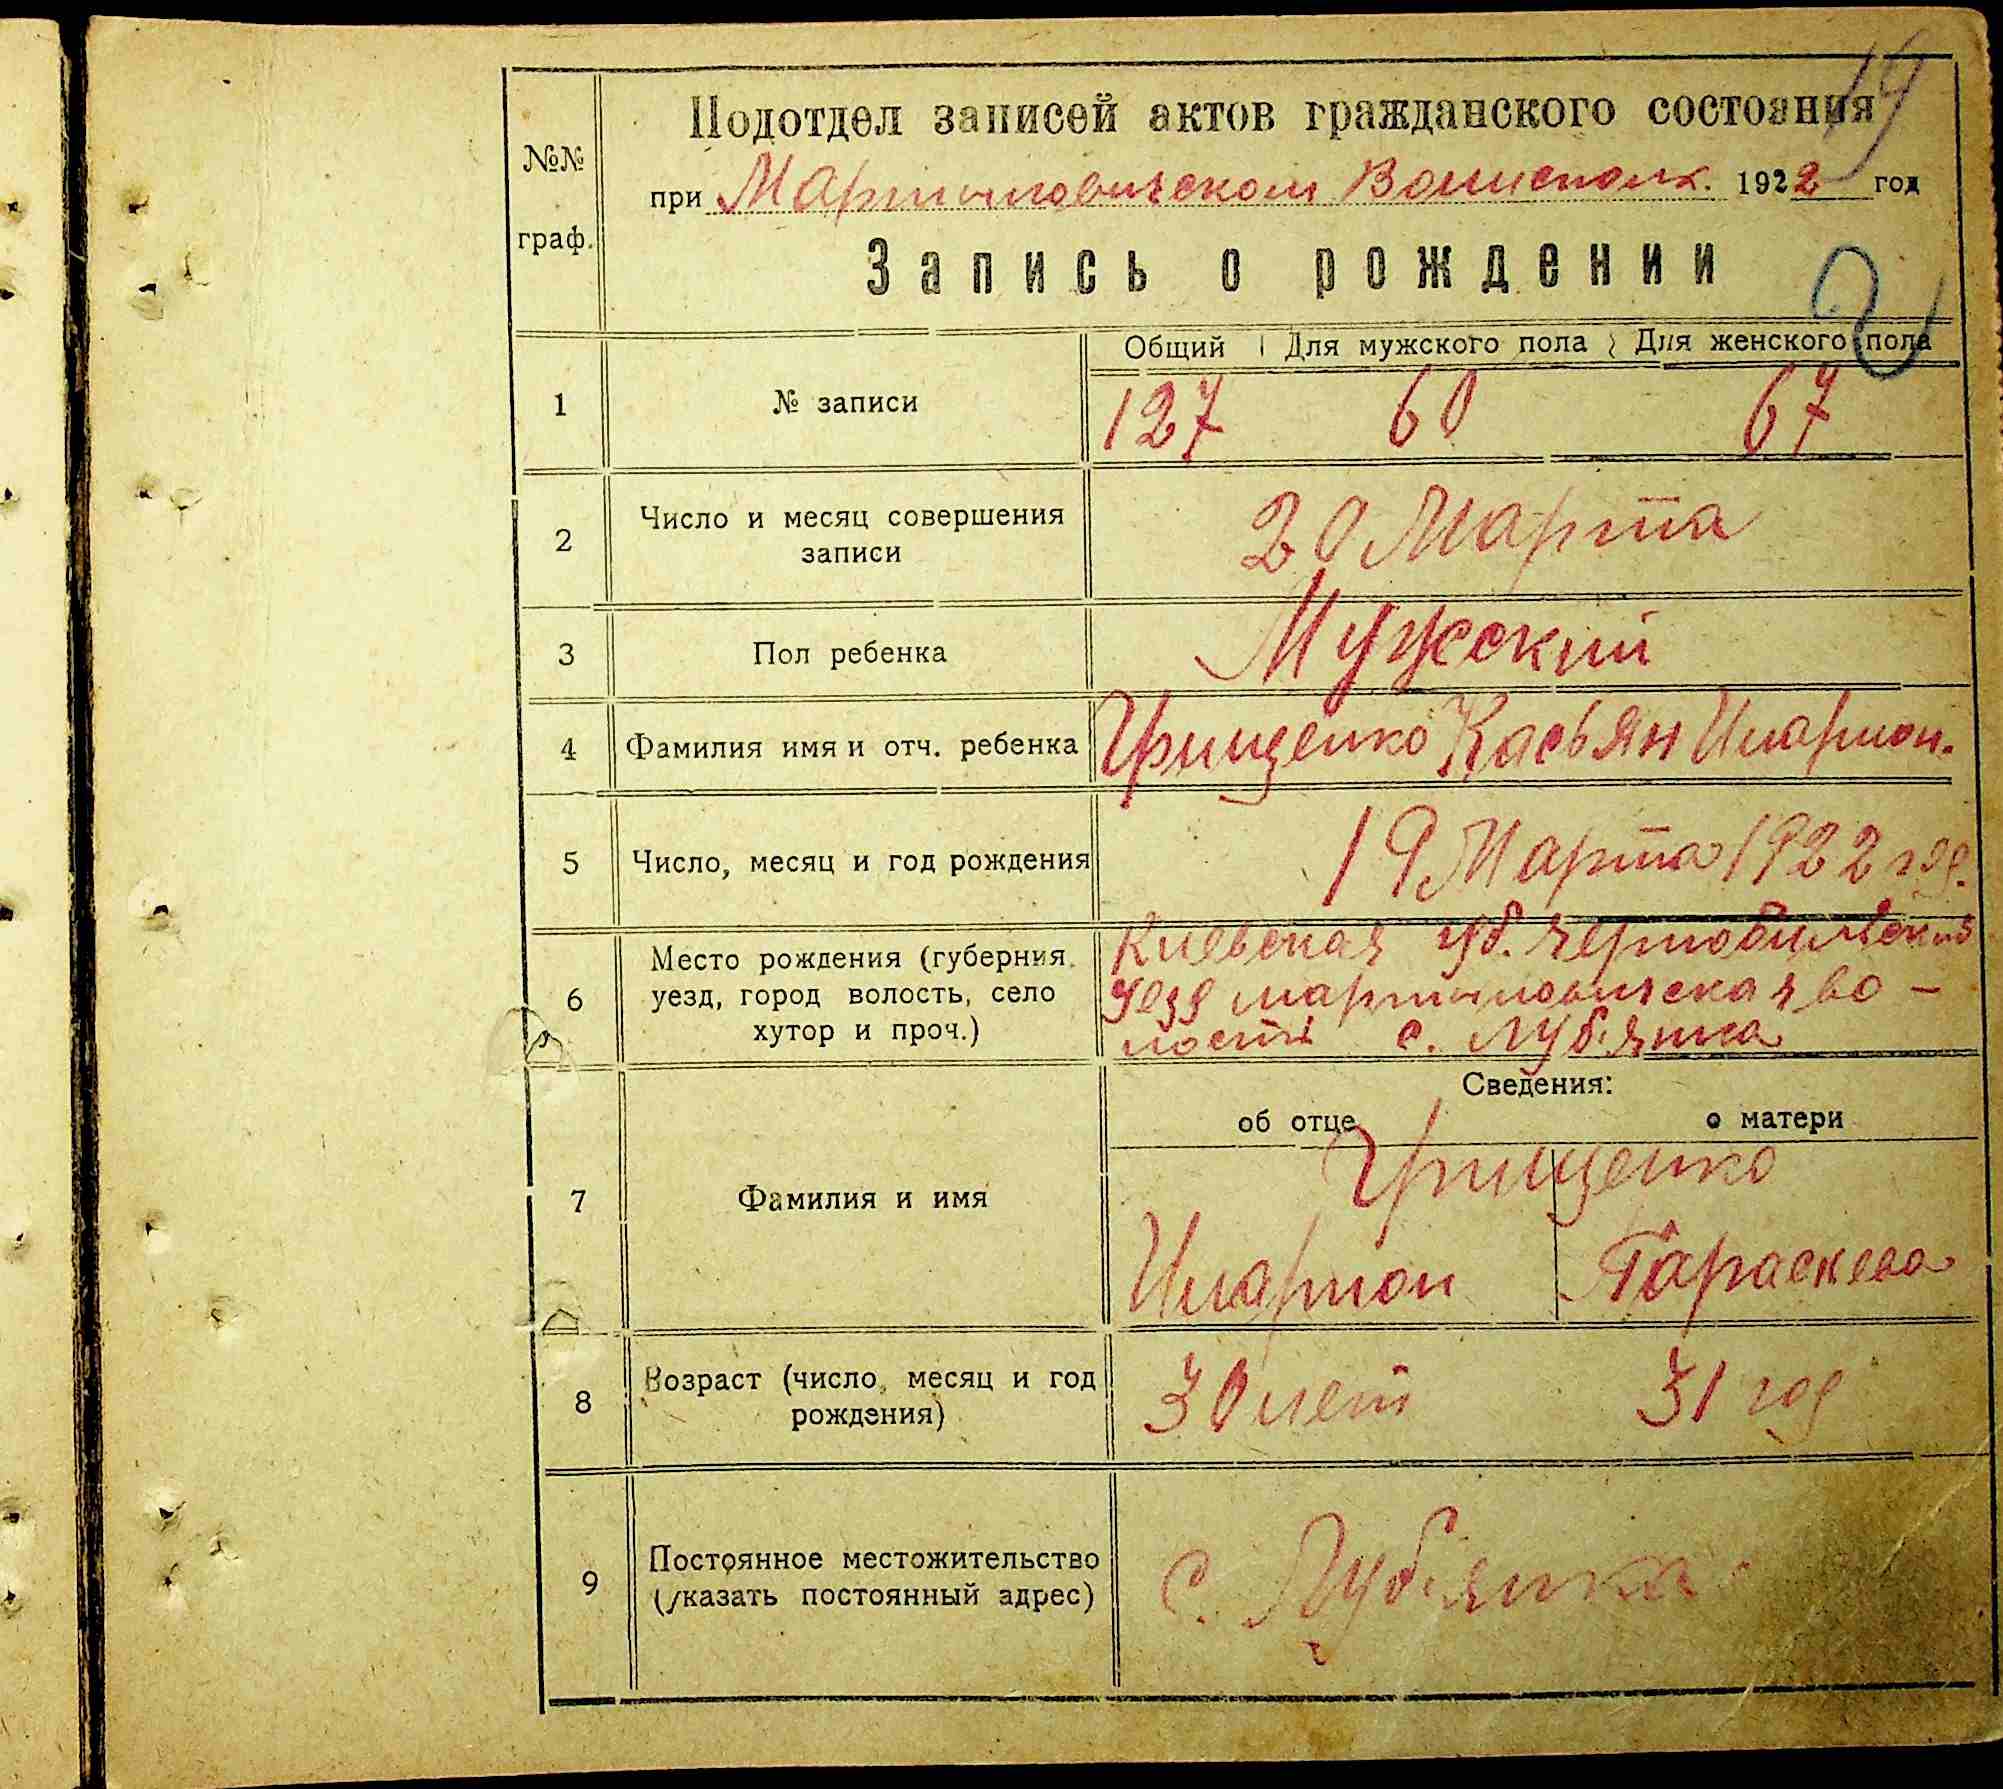 19
Подотдел записей актов гражданского состояния
№№ граф.
при Мартыновическом Волисполк. 1922 год
Запись о рождении
2
Общий Для мужского пола Для женского пола
1 № записи 127 60 67
2 Число и месяц совершения 20 Марта
записи
3 Пол ребенка Мужский
4 Фамилия имя и отч. ребенка Грищенко Касьян Иларион.
5 Число, месяц и год рождения 19 Марта 1922 год.
6 Место рождения (губерния, Киевская губ. Чернобильский
уезд, город волость, село уезд Мартыновическая во-
хутор и проч.) лость с. Лубянка
Сведения:
об отце о матери
7 Фамилия и имя Грищенко
Иларион Параскева
8 Возраст (число, месяц и год 30 лет 31 год
рождения)
9 Постоянное местожительство с. Лубянка
(указать постоянный адрес)